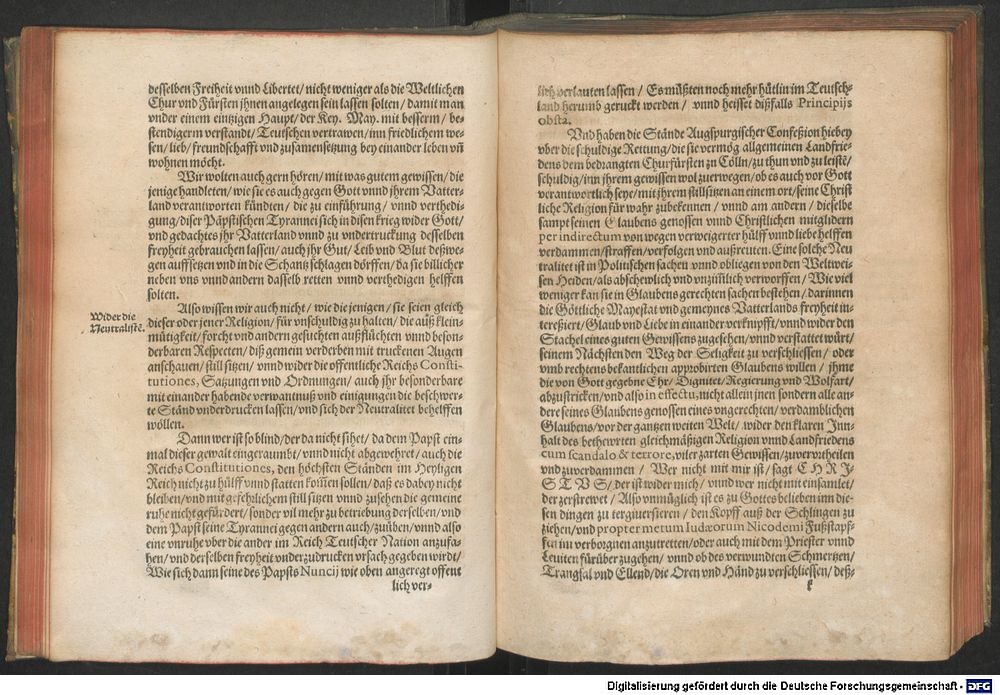 desselben Freiheit vnnd Libertet / nicht weniger als die Weltlichen
Chur vnd Fürsten jhnen angelegen sein lassen solten / damit man
vnder einem eintzigen Haupt / der Key. May. mit besserm / be-
stendigerm verstandt / Teutschen vertrawen / inn friedlichem we-
sen / lieb / freundschafft vnd zusamensetzung bey einander leben vñ
wohnen möcht.
Wir wolten auch gern hören / mit was gutem gewissen / die
jenige handleten / wie sie es auch gegen Gott vnnd jhrem Vatter-
land verantworten kündten / die zu einführung / vnnd verthedi-
gung / diser Päpstischen Tyrannei sich in disen krieg wider Gott /
vnd gedachtes jhr Vatterland vnnd zu vndertruckung desselben
freyheit gebrauchen lassen / auch jhr Gut / Leib vnd Blut deßwe-
gen auffsetzen vnd in die Schantz schlagen dörffen / da sie billicher
neben vns vnnd andern dasselb retten vnnd verthedigen helffen
solten.
Wider die
Neutralistē.
Also wissen wir auch nicht / wie die jenigen / sie seien gleich
dieser oder jener Religion / für vnschuldig zu halten / die auß klein-
mütigkeit / forcht vnd andern gesuchten außflüchten vnnd beson-
derbaren Respecten / diß gemein verderben mit truckenen Augen
anschauen / still sitzen / vnnd wider die offentliche Reichs Consti-
tutiones, Satzungen vnd Ordnungen / auch jhr besonderbare
mit einander habende verwantnuß vnd einigungen die beschwer-
te Ständ vnderdrucken lassen / vnd sich der Neutralitet behelffen
wöllen.
Dann wer ist so blind / der da nicht sihet / da dem Papst ein-
mal dieser gewalt eingeraumbt / vnnd nicht abgewehret / auch die
Reichs Constitutiones, den höchsten Ständen im Heyligen
Reich nicht zu hülff vnnd statten kom̃en sollen / daß es dabey nicht
bleiben / vnd mit gefehrlichem still sitzen vnnd zusehen die gemeine
ruhe nicht gefürdert / sonder vil mehr zu betriebung derselben / vnd
dem Papst seine Tyrannei gegen andern auch / zuüben / vnnd also
eine vnruhe vber die ander im Reich Teutscher Nation anzufa-
hen / vnd derselben freyheit vnderzudrucken vrsach gegeben wirdt /
Wie sich dann seine des Papsts Nuncij wie oben angeregt offent
lich ver-
lich verlauten lassen / Es müßten noch mehr hütlin im Teutsch-
land herumb geruckt werden / vnnd heisset dißfalls Principijs
obsta.
Vnd haben die Stände Augspurgischer Confeßion hiebey
vber die schuldige Rettung / die sie vermög allgemeinen Landfrie-
dens dem bedrangten Churfürsten zu Cölln / zu thun vnd zu leistē /
schuldig / inn jhrem gewissen wol zuerwegen / ob es auch vor Gott
verantwortlich seye / mit jhrem stillsitzen an einem ort / seine Christ
liche Religion für wahr zubekennen / vnnd am andern / dieselbe
sampt seinen Glaubens genossen vnnd Christlichen mitglidern
per indirectum von wegen verweigerter hülff vnnd liebe helffen
verdammen / straffen / verfolgen vnd außreuten. Eine solche Neu
tralitet ist in Politischen sachen vnnd obliegen von den Weltwei-
sen Heiden / als abschewlich vnd vnzimlich verworffen / Wie viel
weniger kan sie in Glaubens gerechten sachen bestehen / darinnen
die Göttliche Mayestat vnd gemeynes Vatterlands freyheit in-
tereßiert / Glaub vnd Liebe in einander verknipfft / vnnd wider den
Stachel eines guten Gewissens zugesehen / vnnd verstattet würt /
seinem Nächsten den Weg der Seligkeit zu verschliessen / oder
vmb rechtens bekantlichen approbirten Glaubens willen / jhme
die von Gott gegebne Ehr / Dignitet / Regierung vnd Wolfart /
abzustricken / vnd also in effectu, nicht allein jnen sondern alle an-
dere seines Glaubens genossen eines vngerechten / verdamblichen
Glaubens / vor der gantzen weiten Welt / wider den klaren Inn-
halt des bethewrten gleichmäßigen Religion vnnd Landfriedens
cum scandalo & terrore, viler zarten Gewissen / zuverurtheilen
vnd zuverdammen / Wer nicht mit mir ist / sagt C H R I-
S T V S / der ist wider mich / vnnd wer nicht mit einsamlet /
der zerstrewet / Also vnmüglich ist es zu Gottes belieben inn die-
sen dingen zu tergiversieren / den Kopff auß der Schlingen zu
ziehen / vnd propter metum Iudæorum Nicodemi Fußstapf-
fen im verborgnen anzutretten / oder auch mit dem Priester vnnd
Leuiten fürüber zugehen / vnnd ob des verwundten Schmertzen /
Trangsal vnd Ellend / die Oren vnd Händ zu verschliessen / deß-
k
Digitalisierung gefördert durch die Deutsche Forschungsgemeinschaft - DFG